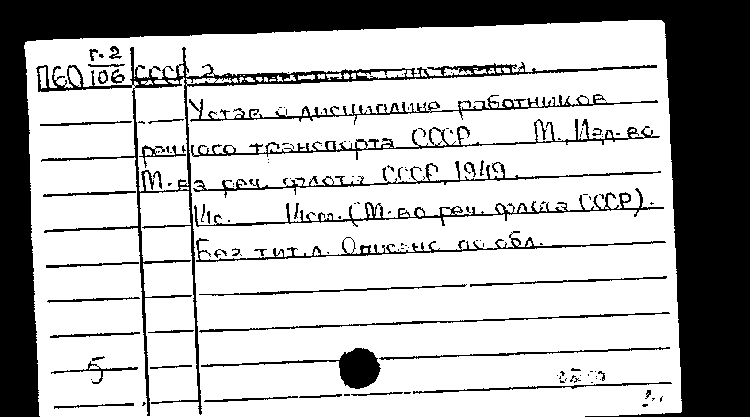 г.2
П60 106 СССР
Устав о дисциплине работников
речного транспорта СССР. М., Изд-во
М-ва реч. флота СССР, 1949.
14с. 14см. (М-во реч. флота СССР).
Без тит.л. Описано по обл.
5